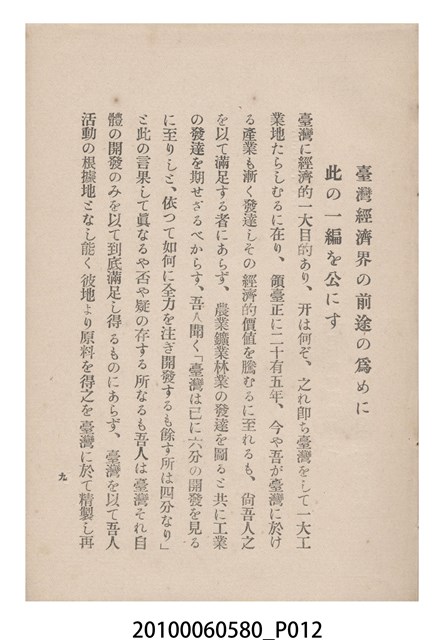 臺灣經濟界の前途の爲めに
此の一編を公にす
臺灣に經濟的一大目的あり、开は何ぞ、之れ卽ち臺灣をして一大工
業地たらしむるに在り、領臺正に二十有五年、今や吾が臺灣に於け
る產業も漸く發達しその經濟的價値を騰むるに至れるも、尙吾人之
を以て滿足する者にあらず、農業鑛業林業の發達を圖ると共に工業
の發達を期せざるべからす、吾人聞く「臺灣は已に六分の開發を見る
に至りしと、依つて如何に全力を注ぎ開發するも餘す所は四分なり」
と此の言果して眞なるや否や疑の存する所なるも吾人は臺灣それ自
體の開發のみを以て到底滿足し得るものにあらず、臺灣を以て吾人
活動の根據地となし能く彼地より原料を得之を臺灣に於て精製し再
九
20100060580_P012